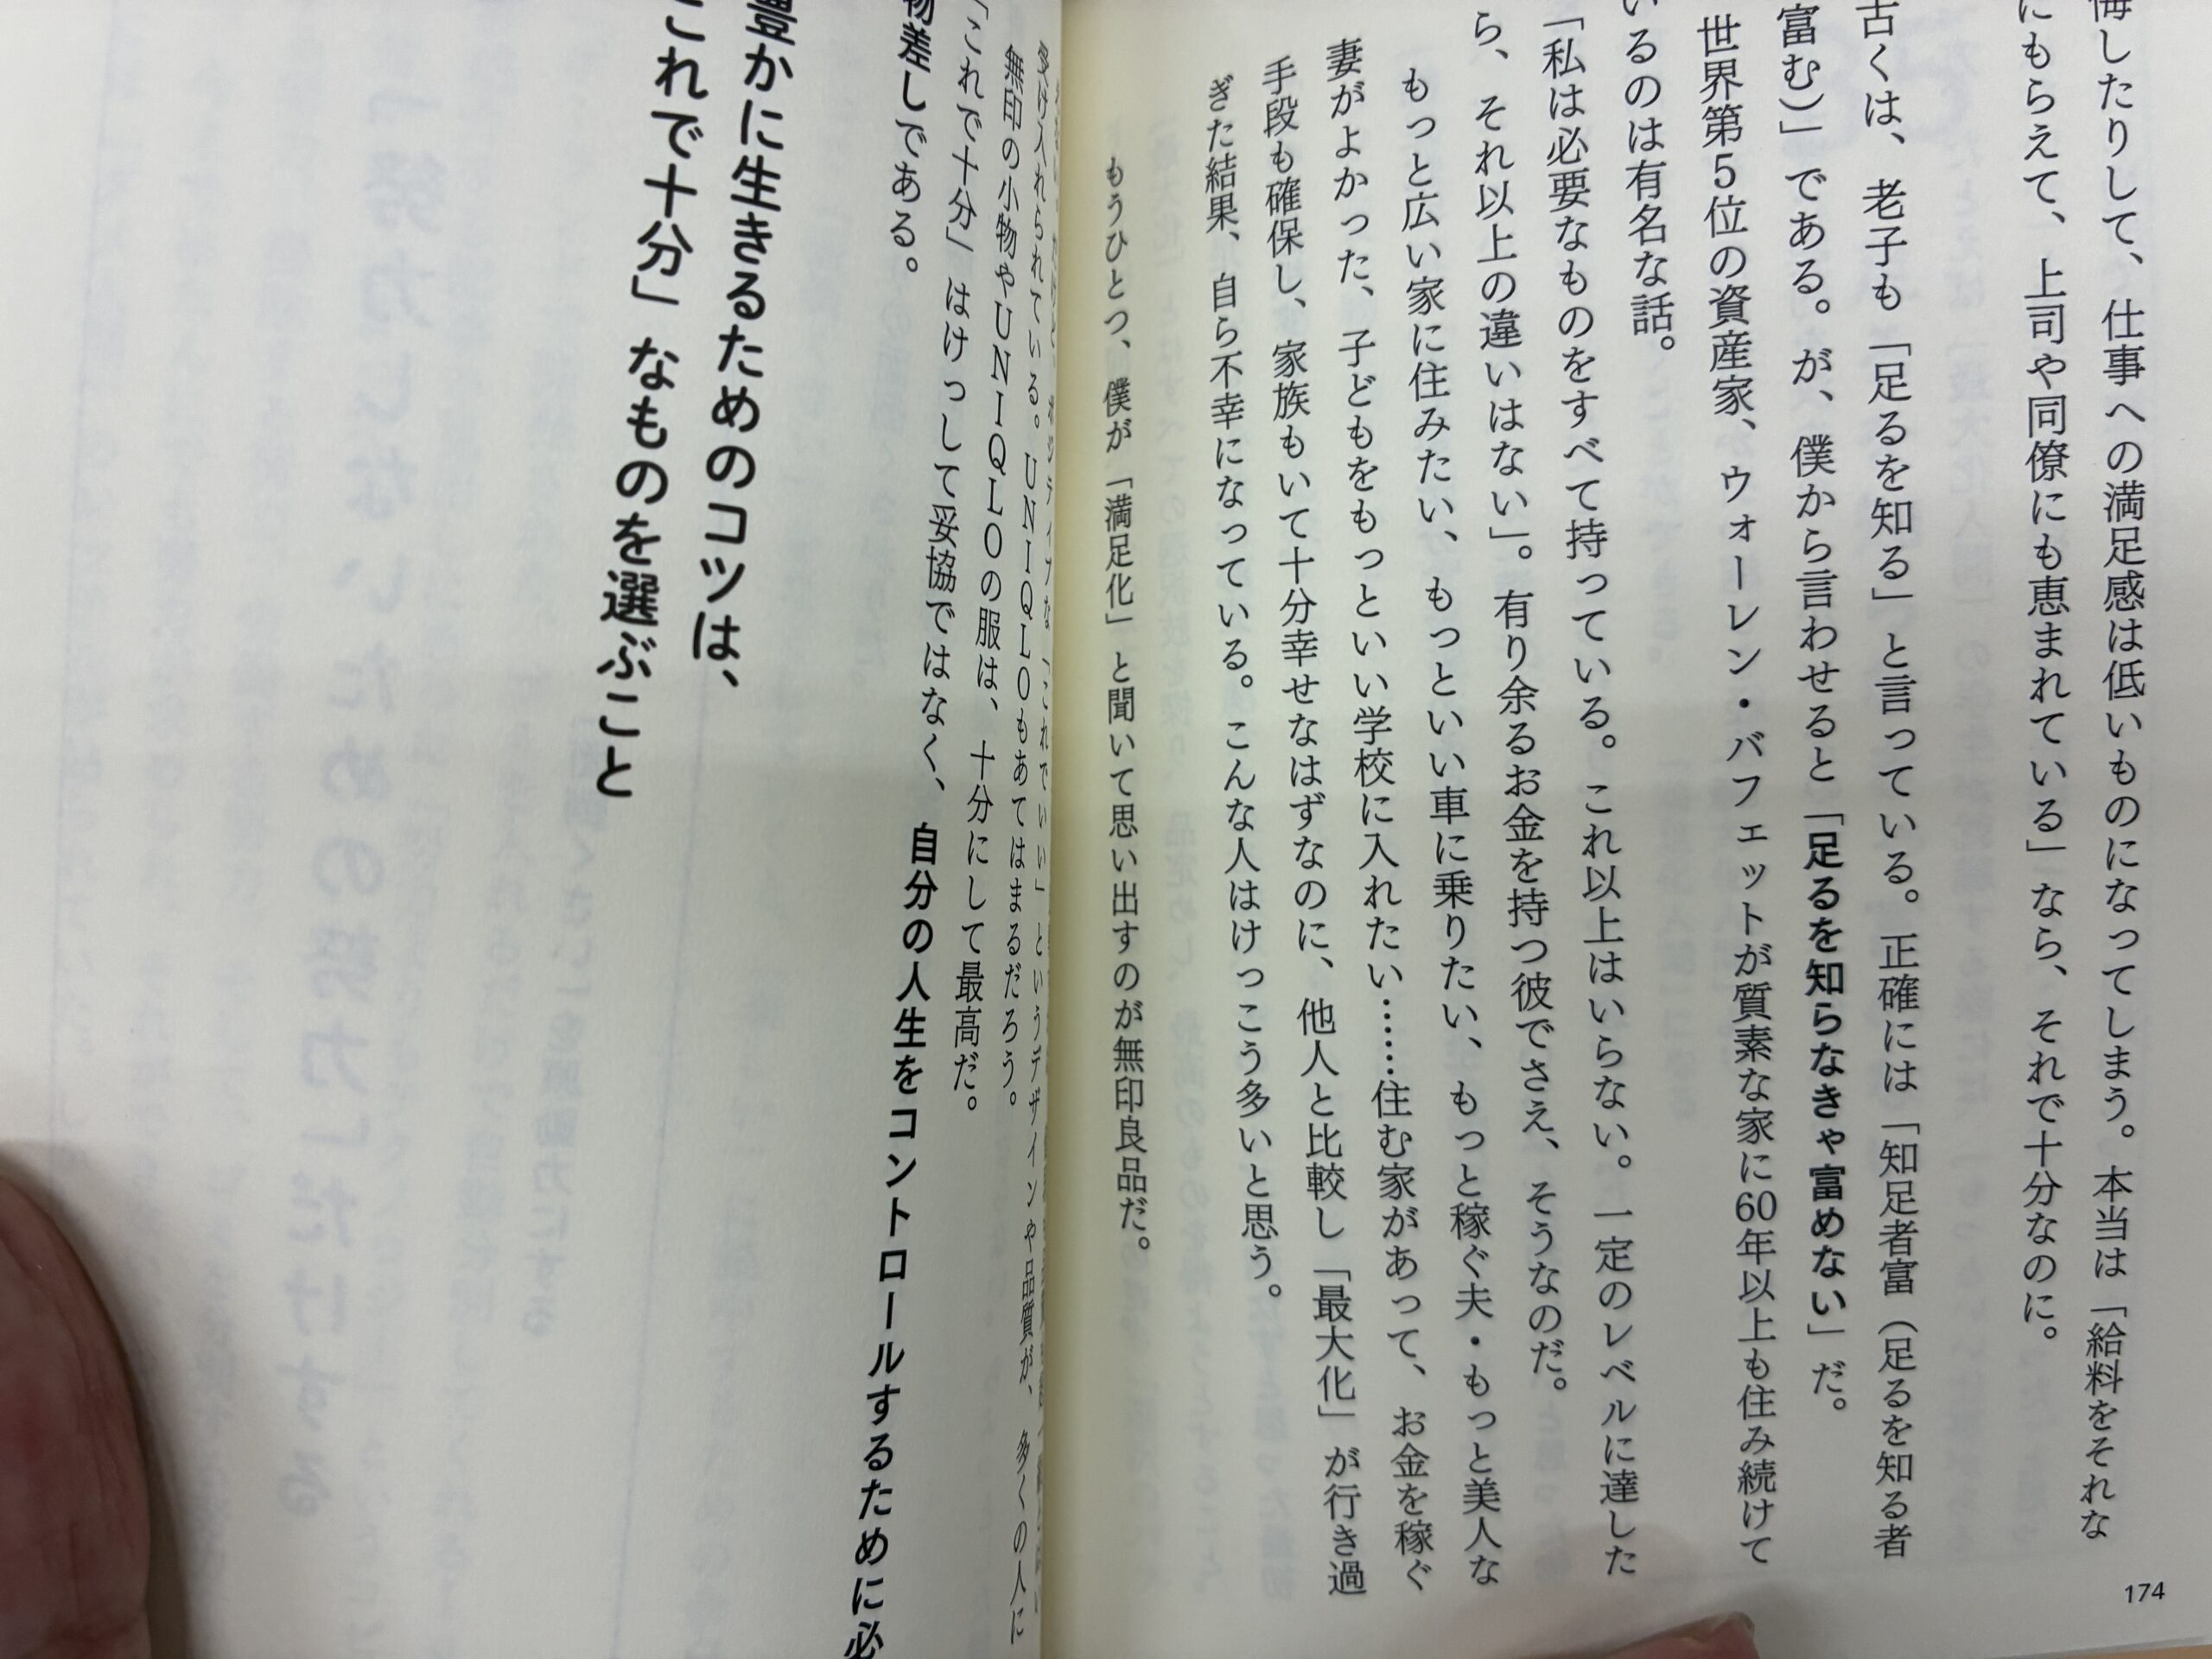 悔したりして、仕事への満足感は低いものになってしまう。本当は「給料をそれな
にもらえて、上司や同僚にも恵まれている」なら、それで十分なのに。
古くは、老子も「足るを知る」と言っている。正確には「知足者富（足るを知る者
富む）」である。が、僕から言わせると「足るを知らなきゃ富めない」だ。
世界第5位の資産家、ウォーレン・バフェットが質素な家に60年以上も住み続けて
いるのは有名な話。
「私は必要なものをすべて持っている。これ以上はいらない。一定のレベルに達した
ら、それ以上の違いはない」。有り余るお金を持つ彼でさえ、そうなのだ。
もっと広い家に住みたい、もっといい車に乗りたい、もっと稼ぐ夫・もっと美人な
妻がよかった、子どもをもっといい学校に入れたい……住む家があって、お金を稼ぐ
手段も確保し、家族もいて十分幸せなはずなのに、他人と比較し「最大化」が行き過
ぎた結果、自ら不幸になっている。こんな人はけっこう多いと思う。
もうひとつ、僕が「満足化」と聞いて思い出すのが無印良品だ。
174
ポジティブな「これでいい」というデザインや品質が、多くの人に
受け入れられている。UNIQLOもあてはまるだろう。
無印の小物やUNIQLOの服は、十分にして最高だ。
「これで十分」はけっして妥協ではなく、自分の人生をコントロールするために必
物差しである。
豊かに生きるためのコツは、
これで十分」なものを選ぶこと